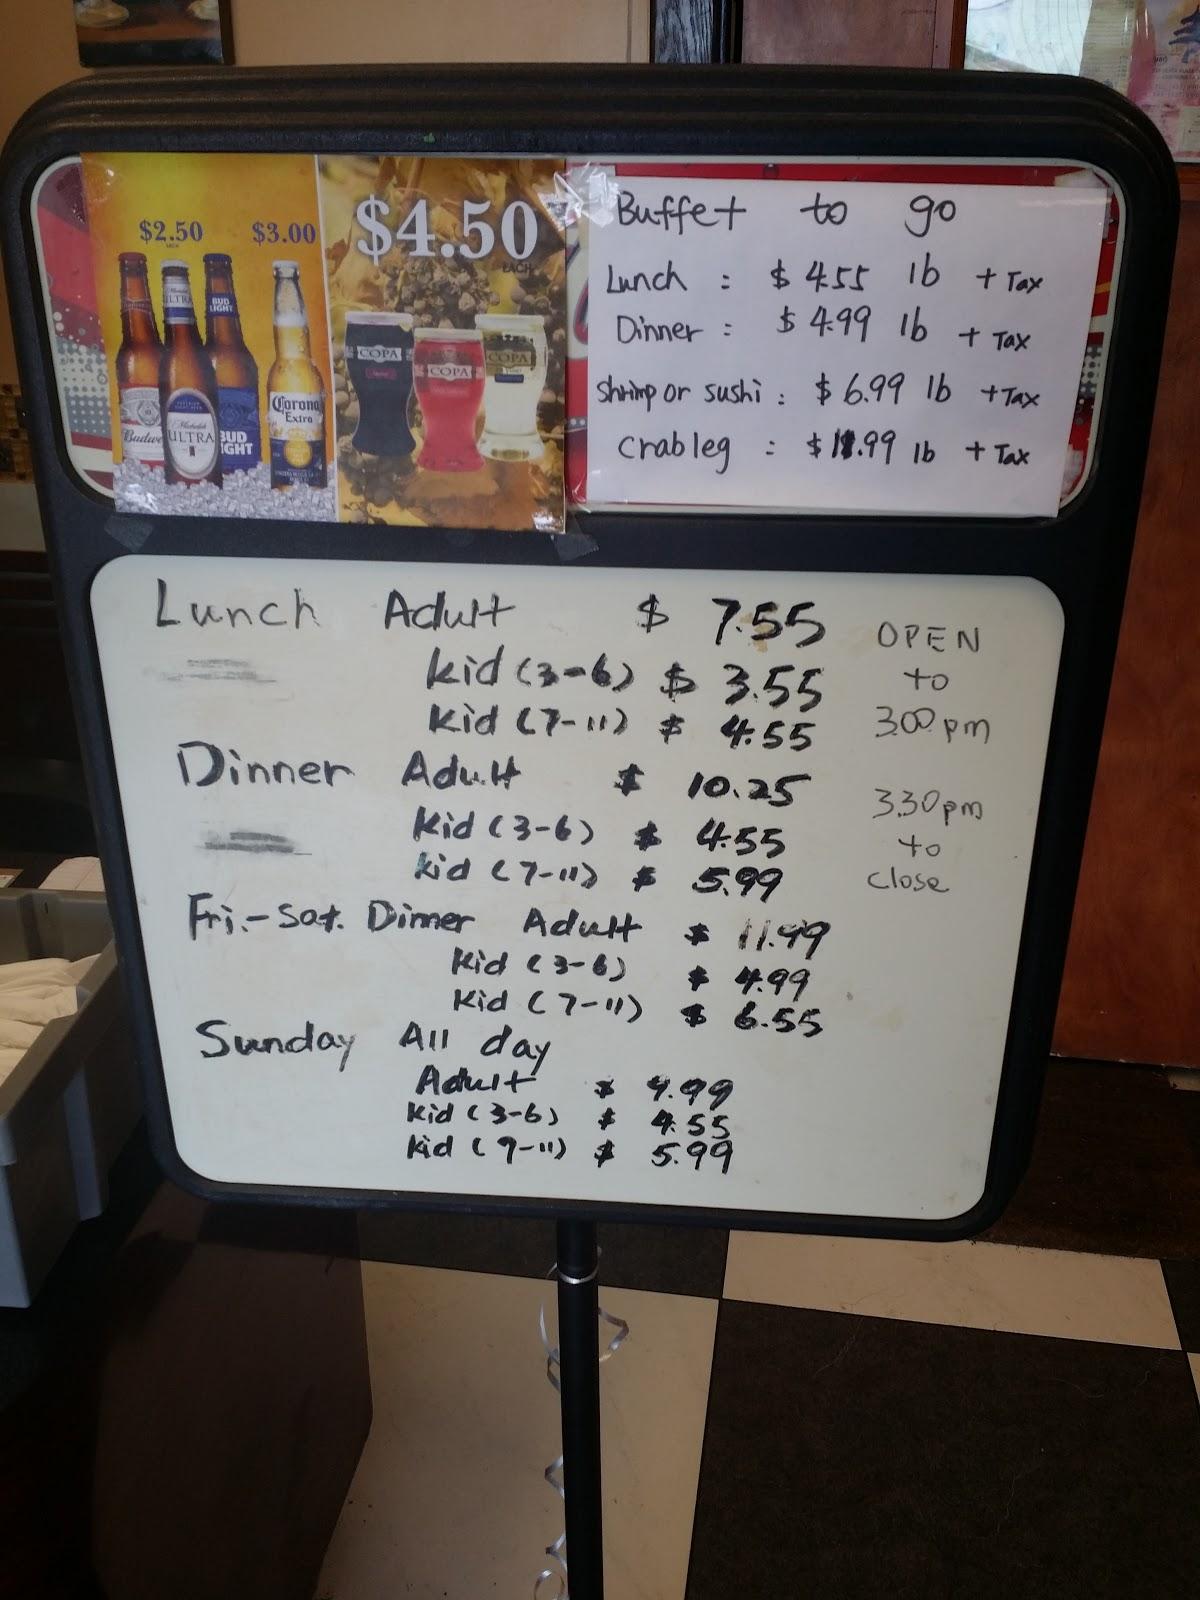 $2.50 $3.00
EACH
BUD
LIGHT
ULTRA
Michelob
ULTRA
BUD
Corona
Extra
$4.50
EACH
COPA
COPA
COPA
Buffet to go
Lunch : $ 4.55 lb + Tax
Dinner : $ 4.99 lb + Tax
Shrimp or sushi : $ 6.99 lb + Tax
Crab leg : $ 11.99 lb + Tax
Lunch Adult $ 7.55
kid (3-6) $ 3.55
kid (7-11) $ 4.55
OPEN
to
3:00 pm
Dinner Adult $ 10.25
kid (3-6) $ 4.55
kid (7-11) $ 5.99
3:30 pm
to
close
Fri.-Sat. Dinner Adult $ 11.99
kid (3-6) $ 4.99
kid (7-11) $ 6.55
Sunday All day
Adult $ 9.99
kid (3-6) $ 4.55
kid (9-11) $ 5.99